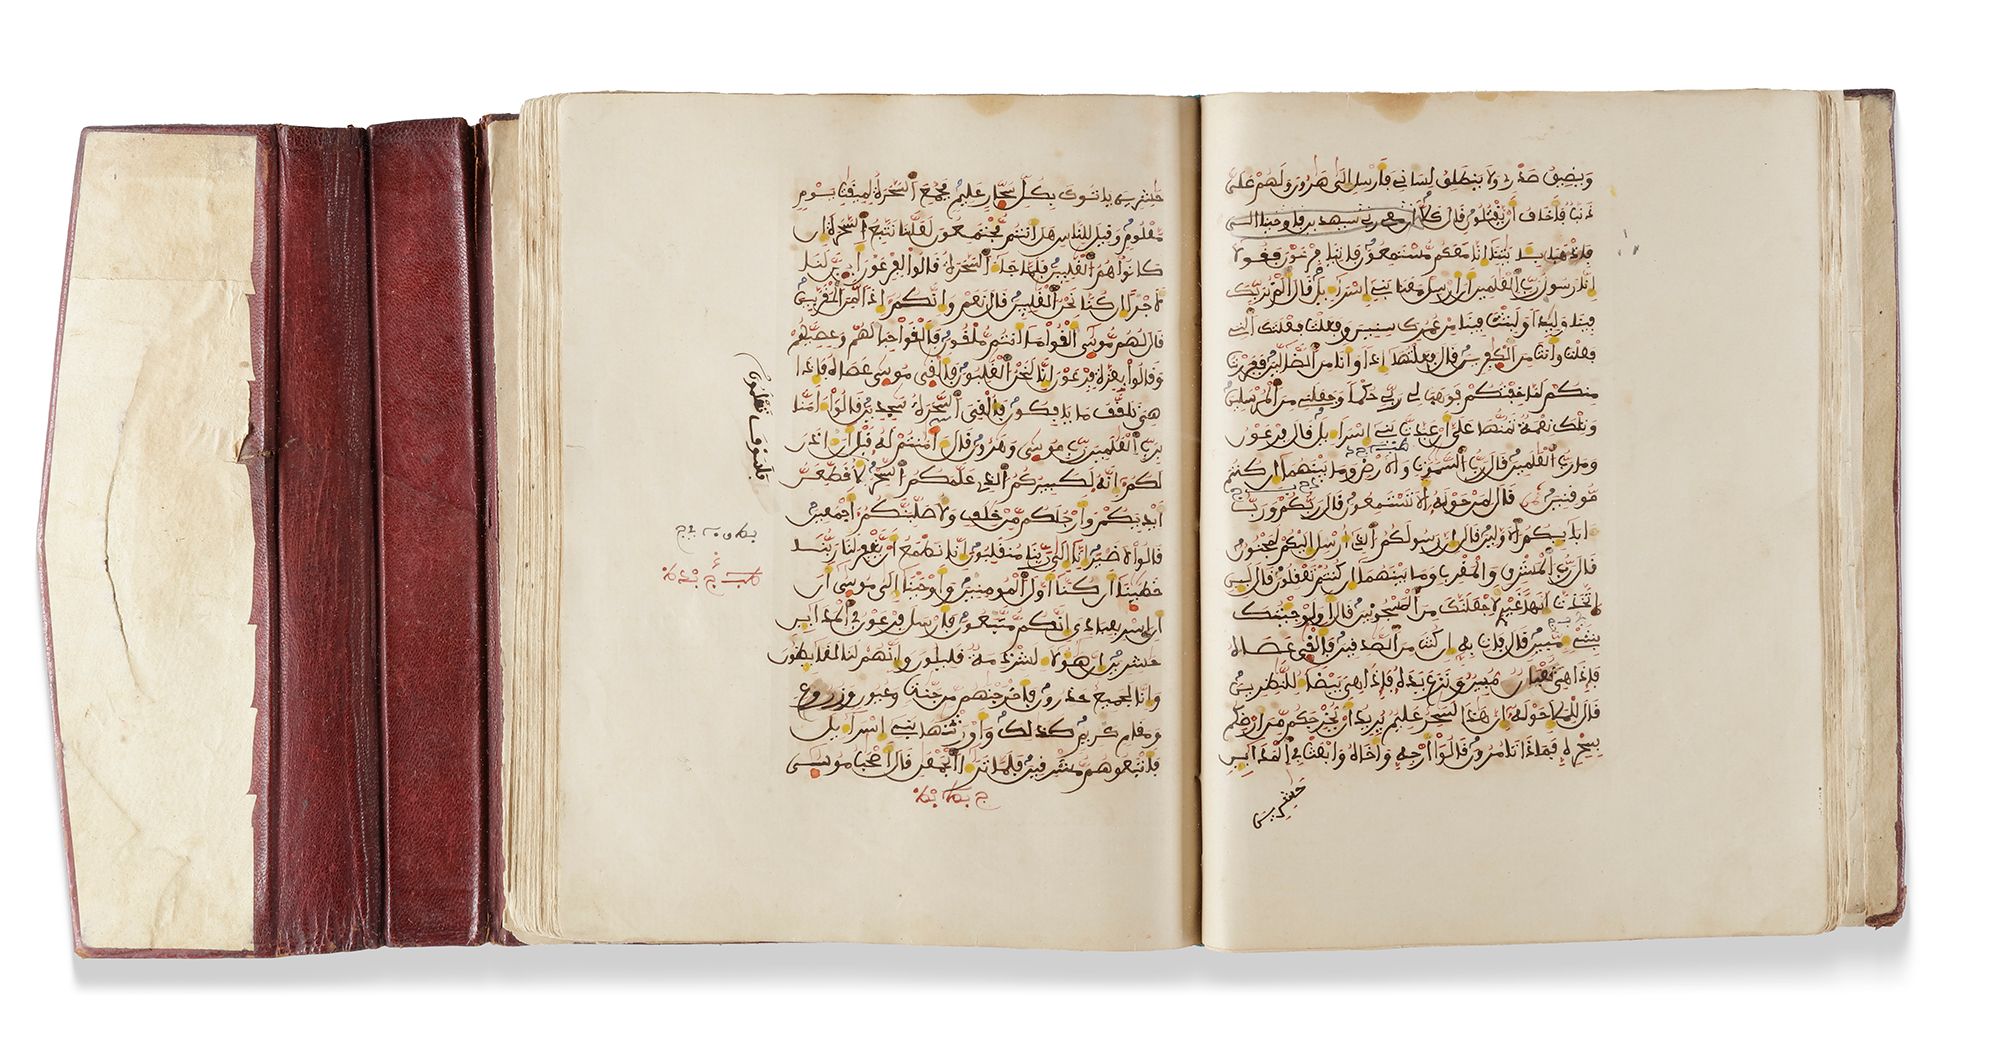 ويضيق صدري ولا ينطلق لساني فأرسل إلى هرون ولهم علي
ذنب فأخاف أن يقتلون قال كلا إن معي ربي سيهدين فأوحينا إلى
فاذهبا بايتنا إنا معكم مستمعون فاتيا فرعون فقولا
إنا رسول رب العلمين أن ارسل معنا بني إسراءيل قال ألم نربك
فينا وليدا ولبثت فينا من عمرك سنين وفعلت فعلتك التي
فعلت وأنت من الكفرين قال فعلتها إذا وأنا من الضالين ففررت
منكم لما خفتكم فوهب لي ربي حكما وجعلني من المرسلين
وتلك نعمة تمنها علي أن عبدت بني إسراءيل قال فرعون
وما رب العلمين قال رب السموت والارض وما بينهما إن كنتم
موقنين قال لمن حوله ألا تستمعون قال ربكم ورب
ابايكم الاولين قال إن رسولكم الذي أرسل إليكم لمجنون
قال رب المشرق والمغرب وما بينهما إن كنتم تعقلون قال لين
اتخذت إلها غيري لأجعلنك من المسجونين قال أولو جيتك
بشيء مبين قال فات به إن كنت من الصدقين فألقى عصاه
فإذا هي ثعبان مبين ونزع يده فإذا هي بيضاء للنظرين
قال للملإ حوله إن هذا لسحر عليم يريد أن يخرجكم من ارضكم
بسحره فماذا تامرون قالوا أرجه وأخاه وابعث في المداين
حشرين
حشرين ياتوك بكل سحار عليم فجمع السحرة لميقات يوم
معلوم وقيل للناس هل انتم مجتمعون لعلنا نتبع السحرة إن
كانوا هم الغلبين فلما جاء السحرة قالوا لفرعون أين لنا
لأجرا إن كنا نحن الغلبين قال نعم وإنكم إذا لمن المقربين
قال لهم موسى ألقوا ما أنتم ملقون فألقوا حبالهم وعصيهم
وقالوا بعزة فرعون إنا لنحن الغلبون فألقى موسى عصاه فإذا
هي تلقف ما يافكون فألقي السحرة سجدين قالوا ءامنا
برب العلمين رب موسى وهرون قال ءامنتم له قبل أن اذن
لكم إنه لكبيركم الذي علمكم السحر لأقطعن
أيديكم وأرجلكم من خلف ولأصلبنكم أجمعين
قالوا لا ضير إنا إلى ربنا منقلبون إنا نطمع أن يغفر لنا ربنا
خطينا أن كنا أول المومنين وأوحينا إلى موسى أن
اسر بعبادي إنكم متبعون فأرسل فرعون في المداين
حشرين إن هؤلاء لشرذمة قليلون وإنهم لنا لغايظون
وإنا لجميع حذرون فأخرجنهم من جنت وعيون وزروع
ومقام كريم كذلك وأورثنها بني إسراءيل
فأتبعوهم مشرقين فلما تراءا الجمعن قال أصحب موسى
فلسوف تعلمون